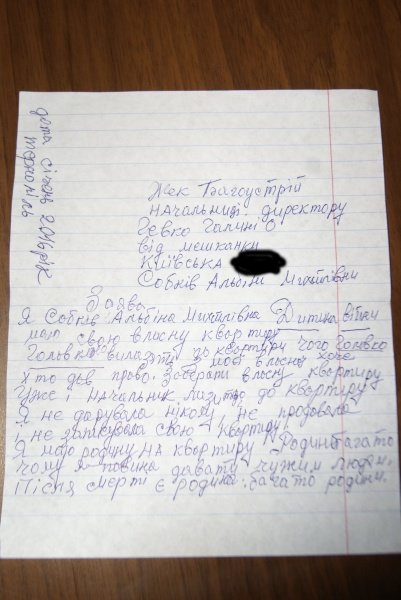 дата січень 2016 рік
тернопіль
Жек Благоустрій
начальниці. директору
Гевко Галині О
від мешканки
Київська
Собків Альбіни Михайлівни
Заява
Я Собків Альбіна Михайлівна Дитина війни
маю свою власну квартиру
Головко вилазить до квартири чого
хто дав право. Забирати власну квартиру
Уже і начальник лизить до квартири
Я не дарувала нікому, не продовала
і не записувала свою квартиру,
Я маю родину на квартиру Родини багато
чому я повина давати чужим людям.
Після смерті є родина. багато родини.